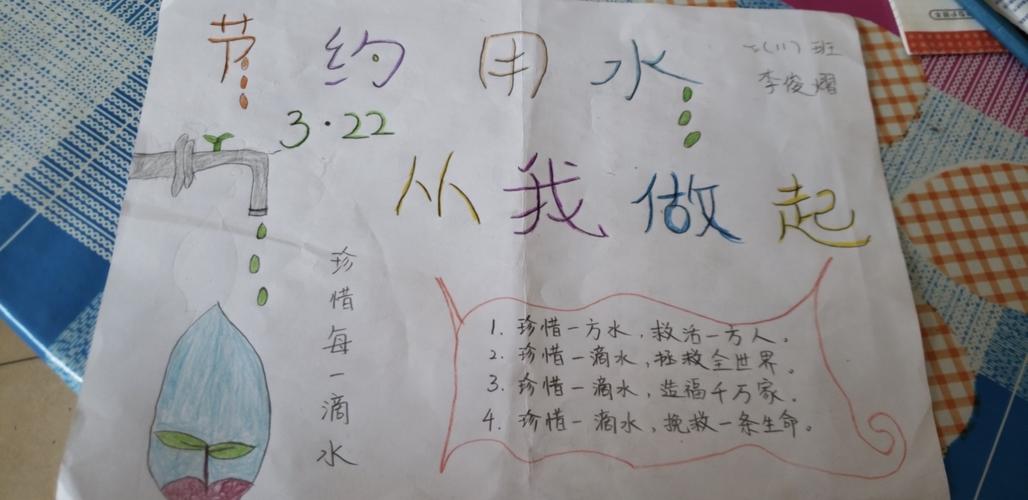 节约用水
七(11)班
李俊熠
3·22
从我做起
珍惜每一滴水
1. 珍惜一方水，救活一方人。
2. 珍惜一滴水，拯救全世界。
3. 珍惜一滴水，造福千万家。
4. 珍惜一滴水，挽救一条生命。